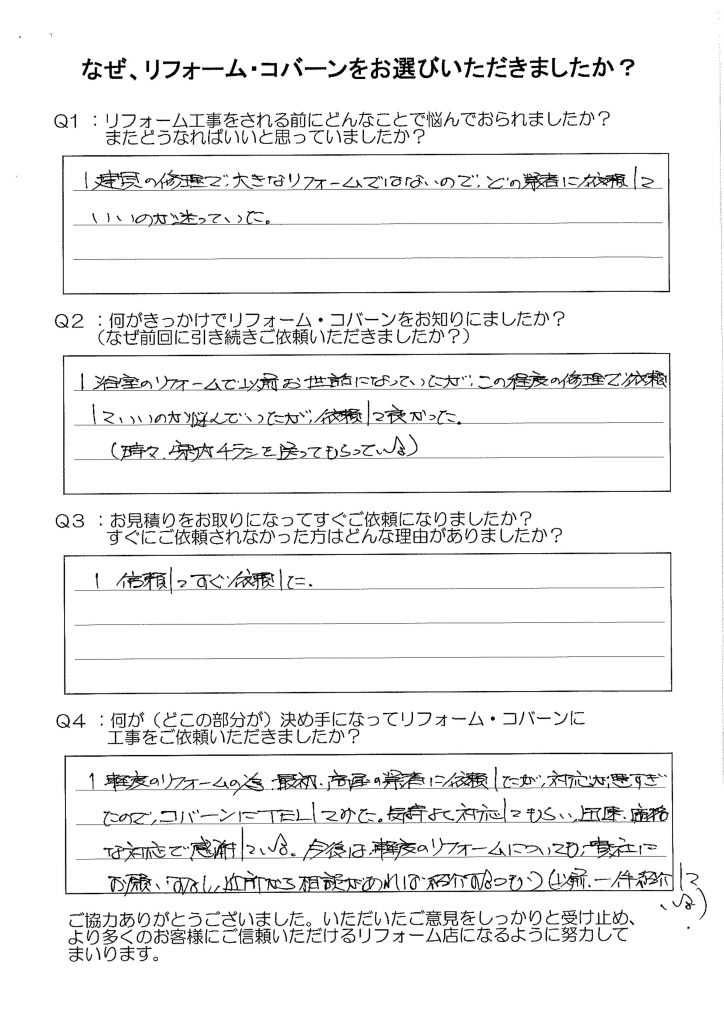 なぜ、リフォーム・コバーンをお選びいただきましたか?
Q1:リフォーム工事をされる前にどんなことで悩んでおられましたか?
またどうなればいいと思っていましたか?
建具の修理で、大きなリフォームではないので、どの業者に依頼して
いいのか迷っていた。
Q2:何がきっかけでリフォーム・コバーンをお知りにましたか?
(なぜ前回に引き続きご依頼いただきましたか?)
浴室のリフォームで以前お世話になっていたが、この程度の修理で依頼
していいのか悩んでいたが、依頼して良かった。
(時々、案内チラシを送ってもらっている)
Q3:お見積りをお取りになってすぐご依頼になりましたか?
すぐにご依頼されなかった方はどんな理由がありましたか?
信頼してすぐ依頼した。
Q4:何が(どこの部分が)決め手になってリフォーム・コバーンに
工事をご依頼いただきましたか?
軽度のリフォームの為、最初、の業者に依頼したが、対応が悪すぎ
たので、コバーンにTELしてみた。気持よく対応してもらい、迅速
な対応で感謝している。今後は、軽度のリフォームについても、貴社に
お願いするし、近所から相談があれば紹介するつもり(以前、一件紹介して
いる)
ご協力ありがとうございました。いただいたご意見をしっかりと受け止め、
より多くのお客様にご信頼いただけるリフォーム店になるように努力して
まいります。